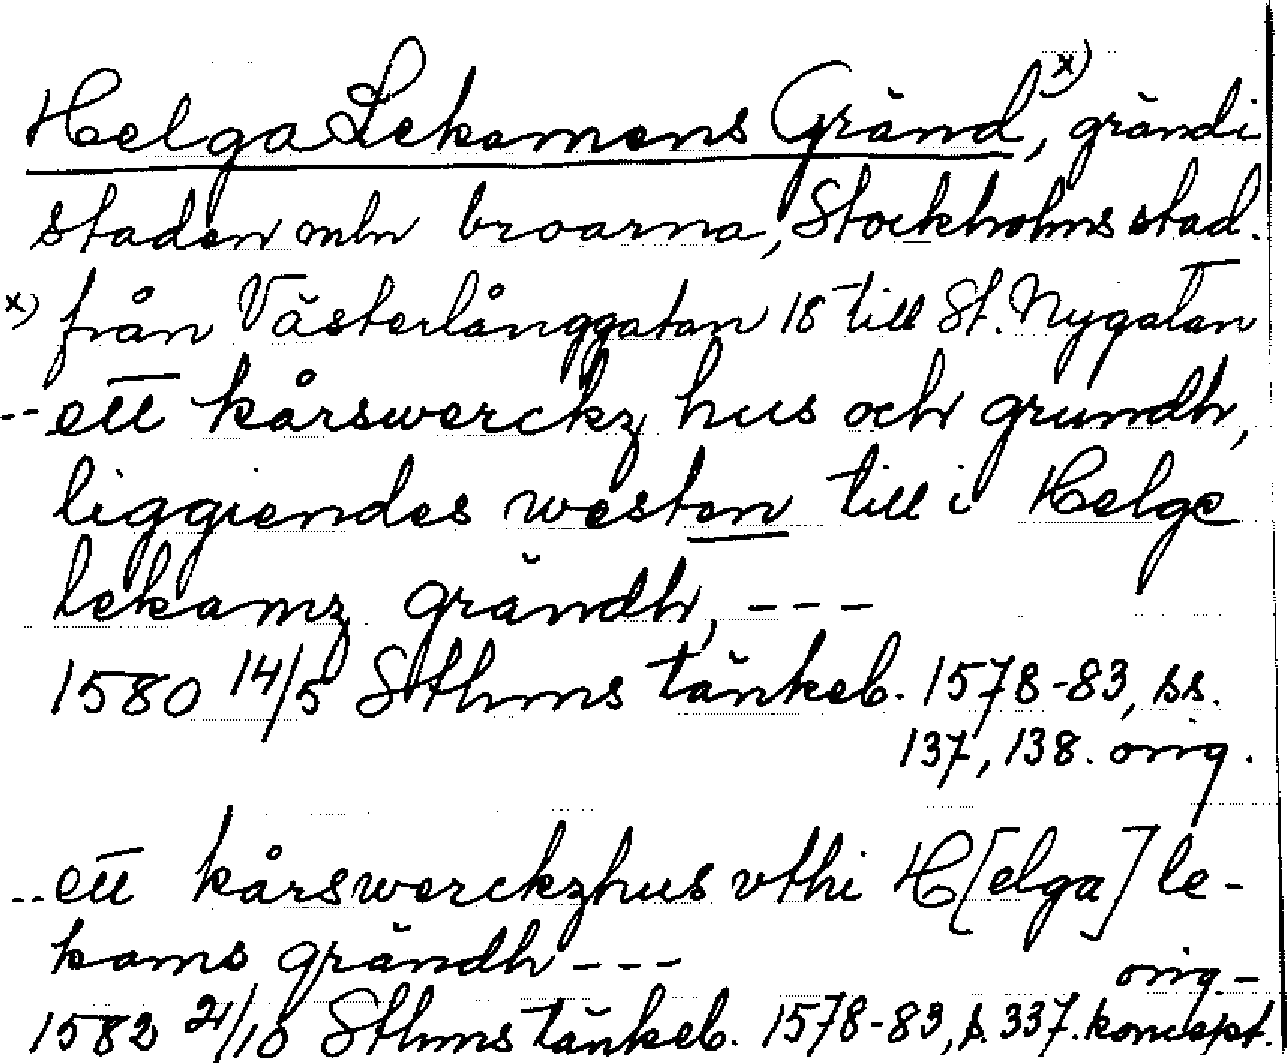 Helga Lekamens Gränd x), gränd i
staden mln broarna, Stockholms stad.
x) från Västerlånggatan 18 till St. Nygatan
-- ett kårswerckz hus och grundh,
liggiendes westen till i Helge
lekamz grändh, ---
1580 14/5 Sthms tänkeb. 1578-83, ss.
137, 138. orig.
-- ett kårswerckzhus vthi H[elga] le-
kams grändh ---
orig-
1582 21/10 Sthms tänkeb. 1578-83, s. 337. koncept.